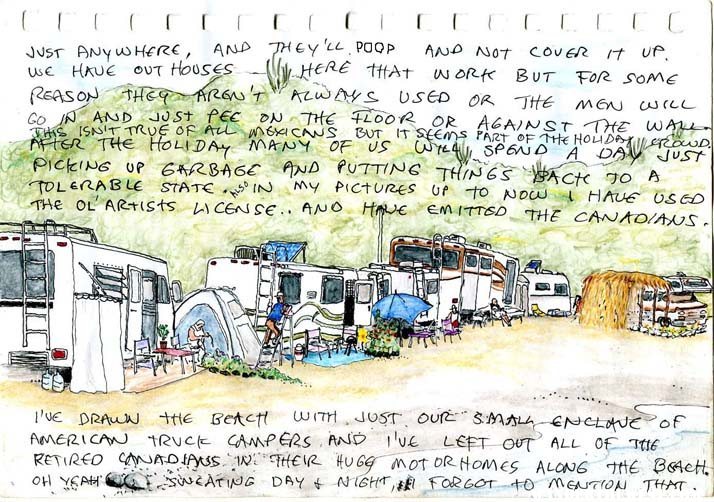 JUST ANYWHERE, AND THEY'LL POOP AND NOT COVER IT UP.
WE HAVE OUTHOUSES HERE THAT WORK BUT FOR SOME
REASON THEY AREN'T ALWAYS USED OR THE MEN WILL
GO IN AND JUST PEE ON THE FLOOR OR AGAINST THE WALL.
THIS ISN'T TRUE OF ALL MEXICANS BUT IT SEEMS PART OF THE HOLIDAY CROWD.
AFTER THE HOLIDAY MANY OF US WILL SPEND A DAY JUST
PICKING UP GARBAGE AND PUTTING THINGS BACK TO A
TOLERABLE STATE. ALSO IN MY PICTURES UP TO NOW I HAVE USED
THE OL' ARTISTS LICENSE.. AND HAVE EMITTED THE CANADIANS.
I'VE DRAWN THE BEACH WITH JUST OUR SMALL ENCLAVE OF
AMERICAN TRUCK CAMPERS AND I'VE LEFT OUT ALL OF THE
RETIRED CANADIANS IN THEIR HUGG MOTORHOMES ALONG THE BEACH.
OH YEAH SWEATING DAY & NIGHT, I FORGOT TO MENTION THAT.